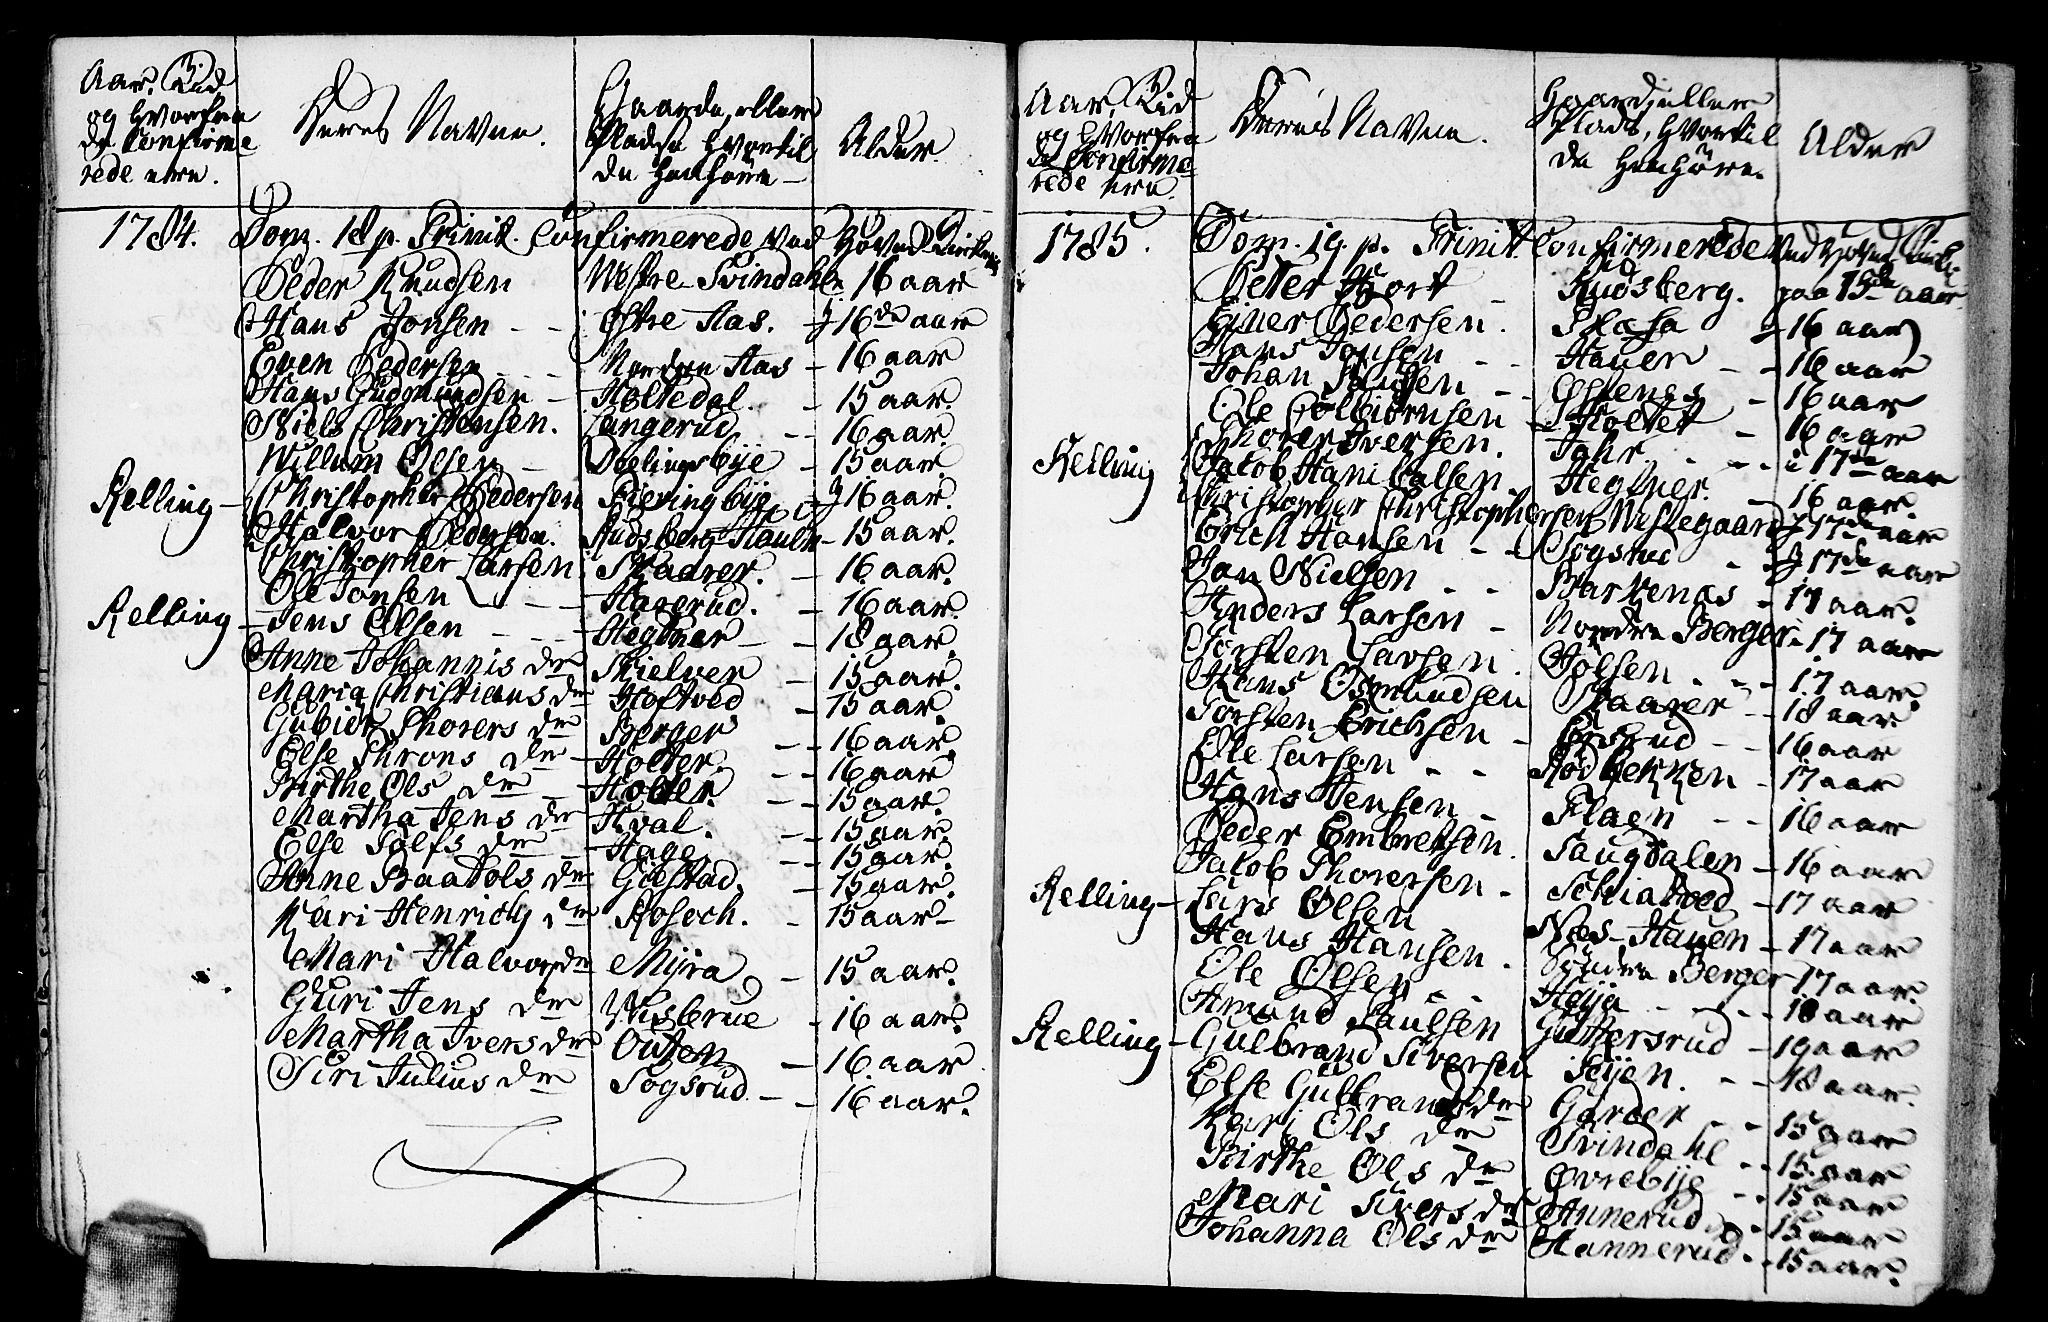 Aar, Tid
og hvorfra
de Confirme
rede ere.
Deres Navne.
Gaarde, eller
Pladse hvortil
de henhøre
Alder.
1784. Dom. 18 p. Trinit. Confirmerede ved Hoved Kirken
Peder Knudsen Westre Svindahl 16 aar
Hans Jonsen - - Østre Aas. - 16de aar
Even Pedersen - - - Nordre Aas - 16 aar
Hans Gudmundsen - Holtedal. - 15 aar
Niels Christensen. Langerud - - 16 aar.
Willum Olsen - Doelingsbÿe - 15 aar
Kelling - Christopher Pedersen 16 aar.
Halvor Pedersen. Rudsberg Hauen - 15 aar.
Christopher Larsen Skaarer. - 16 aar.
Ole Jonsen - - Haserud. - 16 aar.
Kelling - Jens Olsen - - - Hegtner - - 18 aar.
Anne Johannis dr Skielver - 15 aar.
Maria Christians dr Toftved - 15 aar.
Gubiør Thorers dr Berger - - 16 aar.
Else Throns dr - Holter. - - 16 aar.
Birthe Ols dr - Holter. - - 15 aar.
Martha Jens dr Hval. - - 15 aar.
Else Tolfs dr - Hage. - - 15 aar.
Anne Baatols dr Giestad. - 15 aar.
Kari Henrich dr Kosoch. - 15 aar -
Mari Halvors dr Mÿra - 15 aar.
Guri Jens dr Wisbrue - 16 aar.
Martha Ivers dr Outen - 16 aar
Siri Julius dr Sogsrud - - 16 aar.
Aar, Tid
og hvorfra
de Confirme
rede ere.
Deres Navne.
Gaard, eller
Plads, hvortil
de henhøre.
Alder
1785. Dom. 19. p. Trinit. Confirmerede ved Hoved Kirke.
Peter Hiort - Rudsberg. paa 15de aar
Einer Pedersen. Flasa 16 aar
Hans Jonsen - - Hauer - - 16 aar
Johan - - Østenge - 16 aar
Ole Colbiørnsen - Holtet - 16 aar
Thorer Iversen. Jahr - - - i 17de aar
Kelling Jacob Hanibalsen Hegtner. - 16 aar.
Christopher Christophersen Westegaard 17de aar
Erich Hansen - - Sogsrud - 17de aar
Jan Nielsen - - Barkenæs - 17 aar.
Anders Larsen - Nordre Berger - 17 aar
Torsten Larsen. Tolsen - - - 17 aar.
Hans Osmundsen Skaarer - - 18 aar.
Torsten Erichsen - Ersrud - - 16 aar
Ole Larsen - - Rødbekken - 17 aar
Hans Jensen - Flaen - - 16 aar
Peder Embretsen. Haugdalen - 16 aar
Jacob Thorersen - Schiatved - 17 aar
Kelling - Lars Olsen Næs-Hauen - 17 aar
Hans Hansen. Søndre Berger 17 aar.
Ole Olsen - - Heÿa - - - 18 aar
Amund Paulsen Guttersrud - 19 aar
Kelling - Gulbrand Siversen Teÿen. - - 18 aar.
Else Gulbrands dr Garder - - 15 aar
Kari Ols dr Svindahl - - 15 aar
Birthe Ols dr Øvrebÿe - - 15 aar
Mari Sivers dr Annerud - - 15 aar
Johanna Ols dr Hannerud - - 15 aar.